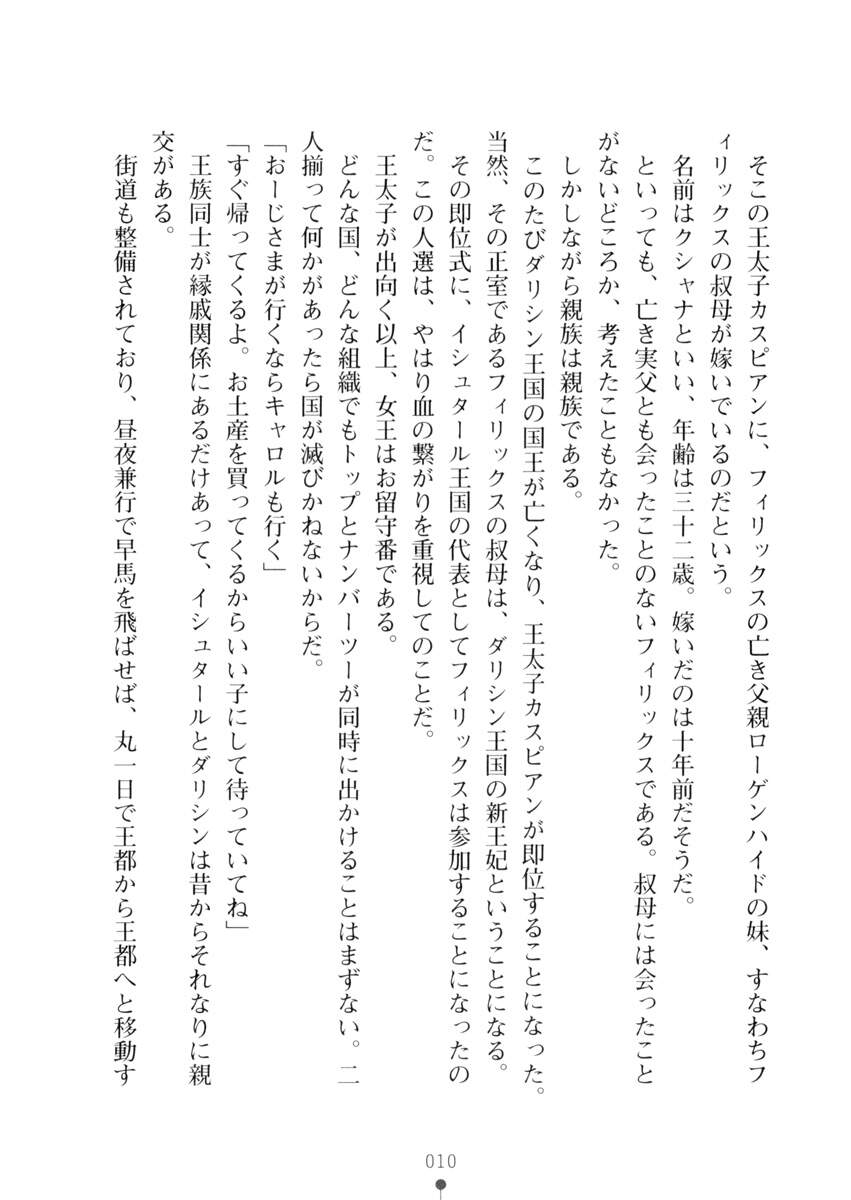 そこの王太子カスピアンに、フィリックスの亡き父親ローゲンハイドの妹、すなわちフ
ィリックスの叔母が嫁いでいるのだという。
　名前はクシャナといい、年齢は三十二歳。嫁いだのは十年前だそうだ。
　といっても、亡き実父とも会ったことのないフィリックスである。叔母には会ったこと
がないどころか、考えたこともなかった。
　しかしながら親族は親族である。
　このたびダリシン王国の国王が亡くなり、王太子カスピアンが即位することになった。
当然、その正室であるフィリックスの叔母は、ダリシン王国の新王妃ということになる。
　その即位式に、イシュタール王国の代表としてフィリックスは参加することになったの
だ。この人選は、やはり血の繋がりを重視してのことだ。
　王太子が出向く以上、女王はお留守番である。
　どんな国、どんな組織でもトップとナンバーツーが同時に出かけることはまずない。二
人揃って何かがあったら国が滅びかねないからだ。
「おーじさまが行くならキャロルも行く」
「すぐ帰ってくるよ。お土産を買ってくるからいい子にして待っていてね」
　王族同士が縁戚関係にあるだけあって、イシュタールとダリシンは昔からそれなりに親
交がある。
　街道も整備されており、昼夜兼行で早馬を飛ばせば、丸一日で王都から王都へと移動す
010